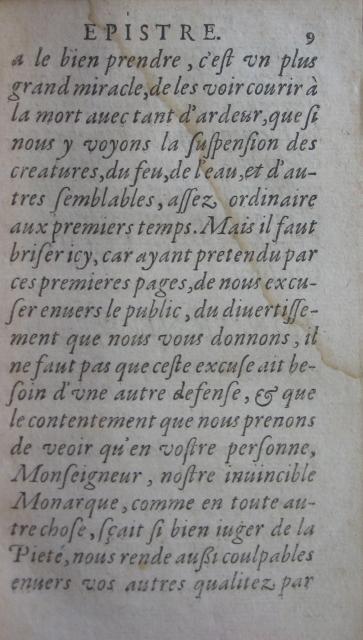 EPISTRE. 9
a le bien prendre, c'eſt vn plus
grand miracle, de les voir courir à
la mort auec tant d'ardeur, que ſi
nous y voyons la ſuſpenſion des
creatures, du feu, de l'eau, et d'au-
tres ſemblables, aſſez ordinaire
aux premiers temps. Mais il faut
briſer icy, car ayant pretendu par
ces premieres pages, de nous excu-
ſer enuers le public, du diuertiſſe-
ment que nous vous donnons, il
ne faut pas que ceſte excuſe ait be-
ſoin d'vne autre defenſe, & que
le contentement que nous prenons
de veoir qu'en voſtre perſonne,
Monſeigneur, noſtre inuincible
Monarque, comme en toute au-
tre choſe, ſçait ſi bien iuger de la
Pieté, nous rende auſsi coulpables
enuers vos autres qualitez par